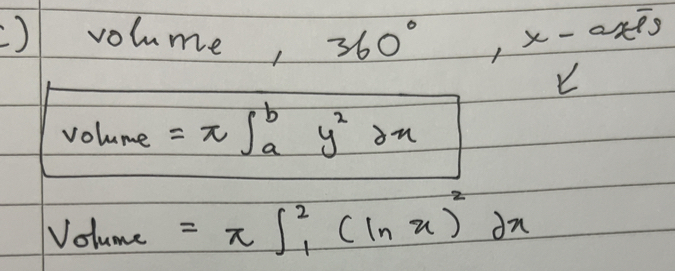 c) volume, 360°, x-axis
↙
volume = π ∫ₐᵇ y² dx
Volume = π ∫₁² (ln x)² dx